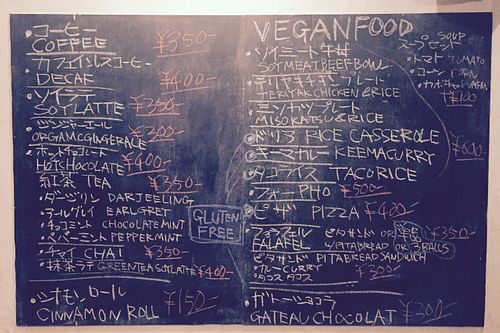 ・コーヒー
COFFEE ¥350-
カフェインレスコーヒー
DECAF ¥400-
ソイラテ
SOYLATTE ¥350-
ORGANIC GINGERALE ¥300-
・ホットチョコレート
HOTSHOCOLATE ¥400-
紅茶 TEA ¥350-
・ダージリン DARJEELING
・アールグレイ EARLGREY
・チョコミント CHOCOLATEMINT
・ペパーミント PEPPERMINT
・チャイ CHAI ¥350-
・抹茶ラテ GREENTEA SOYLATTE ¥400-
・シナモンロール
CINNAMON ROLL ¥150-
GLUTEN
FREE
VEGANFOOD
・ソイミート牛丼
SOYMEATBEEFBOWL
・テリヤキチキンプレート
TERIYAKI CHICKEN & RICE
・ミソカツプレート
MISOKATSU & RICE
・ドリア RICE CASSEROLE
・キーマカレー KEEMACURRY
・タコライス TACORICE
¥600-
・フォー PHO ¥500-
・ピザ PIZZA ¥400-
・ファラフェル ピタサンド or 3コ ¥350-
FALAFEL W/PITABREAD OR 3BALLS
・ピタサンド PITABREAD SANDWICH
・カレー CURRY ¥300-
・タコス タコス
・ガトーショコラ
GATEAU CHOCOLAT ¥300-
SOUP
スープセット
・トマト TOMATO
・コーン CORN
・カボチャ
¥100